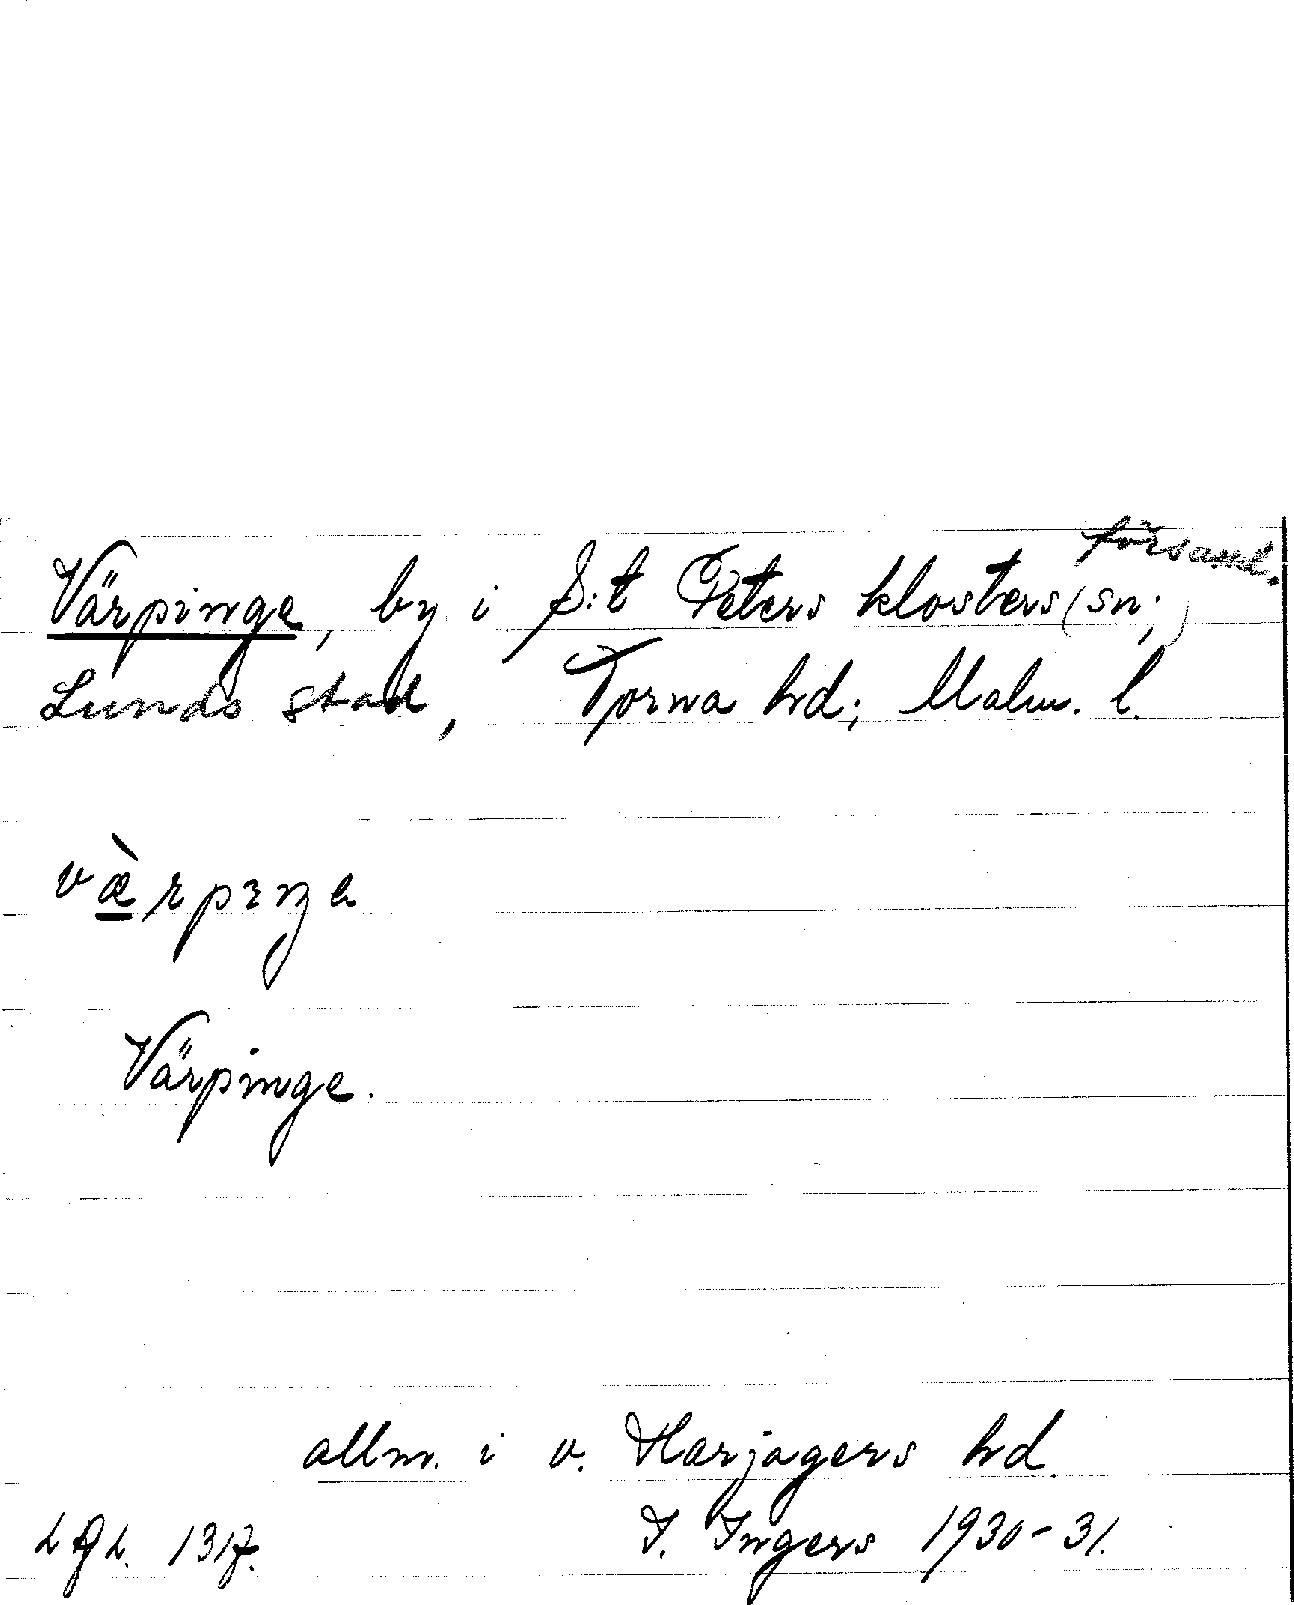 församl.
Värpinge, by i S:t Peters klosters (sn;)
Lunds stad, Torna hd; Malm. l.
væ̀rpıŋə
Värpinge.
allm. i v. Harjagers hd.
I. Ingers 1930-31.
LGL. 1317.